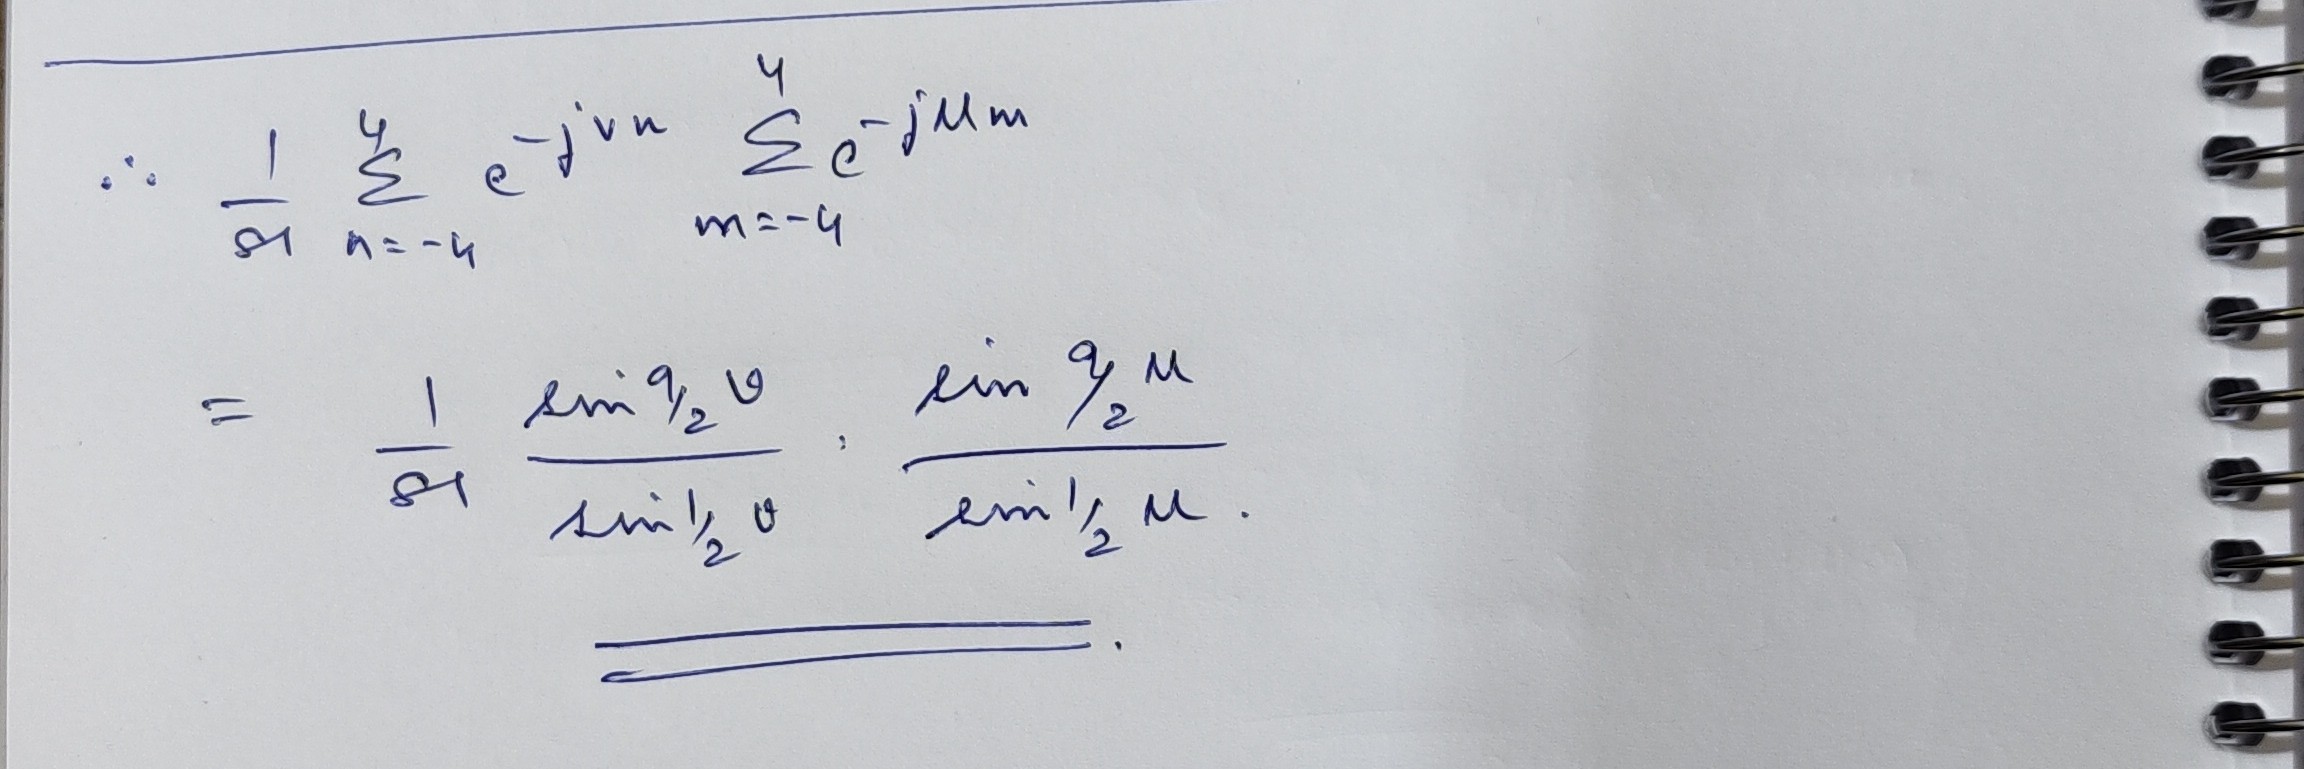 ∴ 1/81 Σ_{n=-4}^{4} e^{-jvn} Σ_{m=-4}^{4} e^{-jμm}
= 1/81 (sin 9/2 v)/(sin 1/2 v) · (sin 9/2 μ)/(sin 1/2 μ).